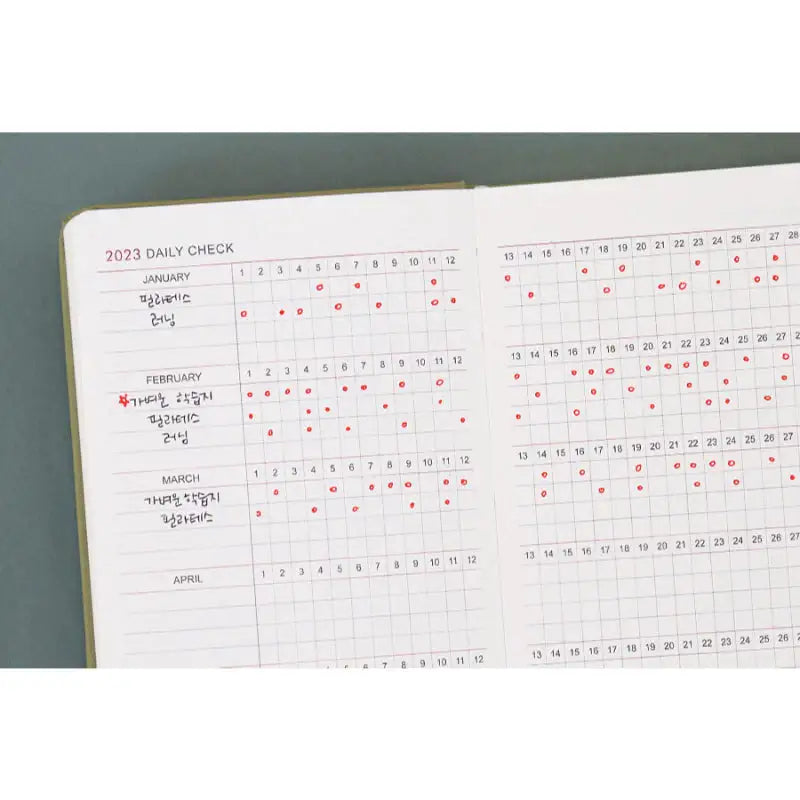 2023 DAILY CHECK
JANUARY 1 2 3 4 5 6 7 8 9 10 11 12 13 14 15 16 17 18 19 20 21 22 23 24 25 26 27 28
필라테스
러닝
FEBRUARY 1 2 3 4 5 6 7 8 9 10 11 12 13 14 15 16 17 18 19 20 21 22 23 24 25 26 27 28
가벼운 학습지
필라테스
러닝
MARCH 1 2 3 4 5 6 7 8 9 10 11 12 13 14 15 16 17 18 19 20 21 22 23 24 25 26 27
가벼운 학습지
필라테스
APRIL 1 2 3 4 5 6 7 8 9 10 11 12 13 14 15 16 17 18 19 20 21 22 23 24 25 26 27
7 8 9 10 11 12 13 14 15 16 17 18 19 20 21 22 23 24 25 26